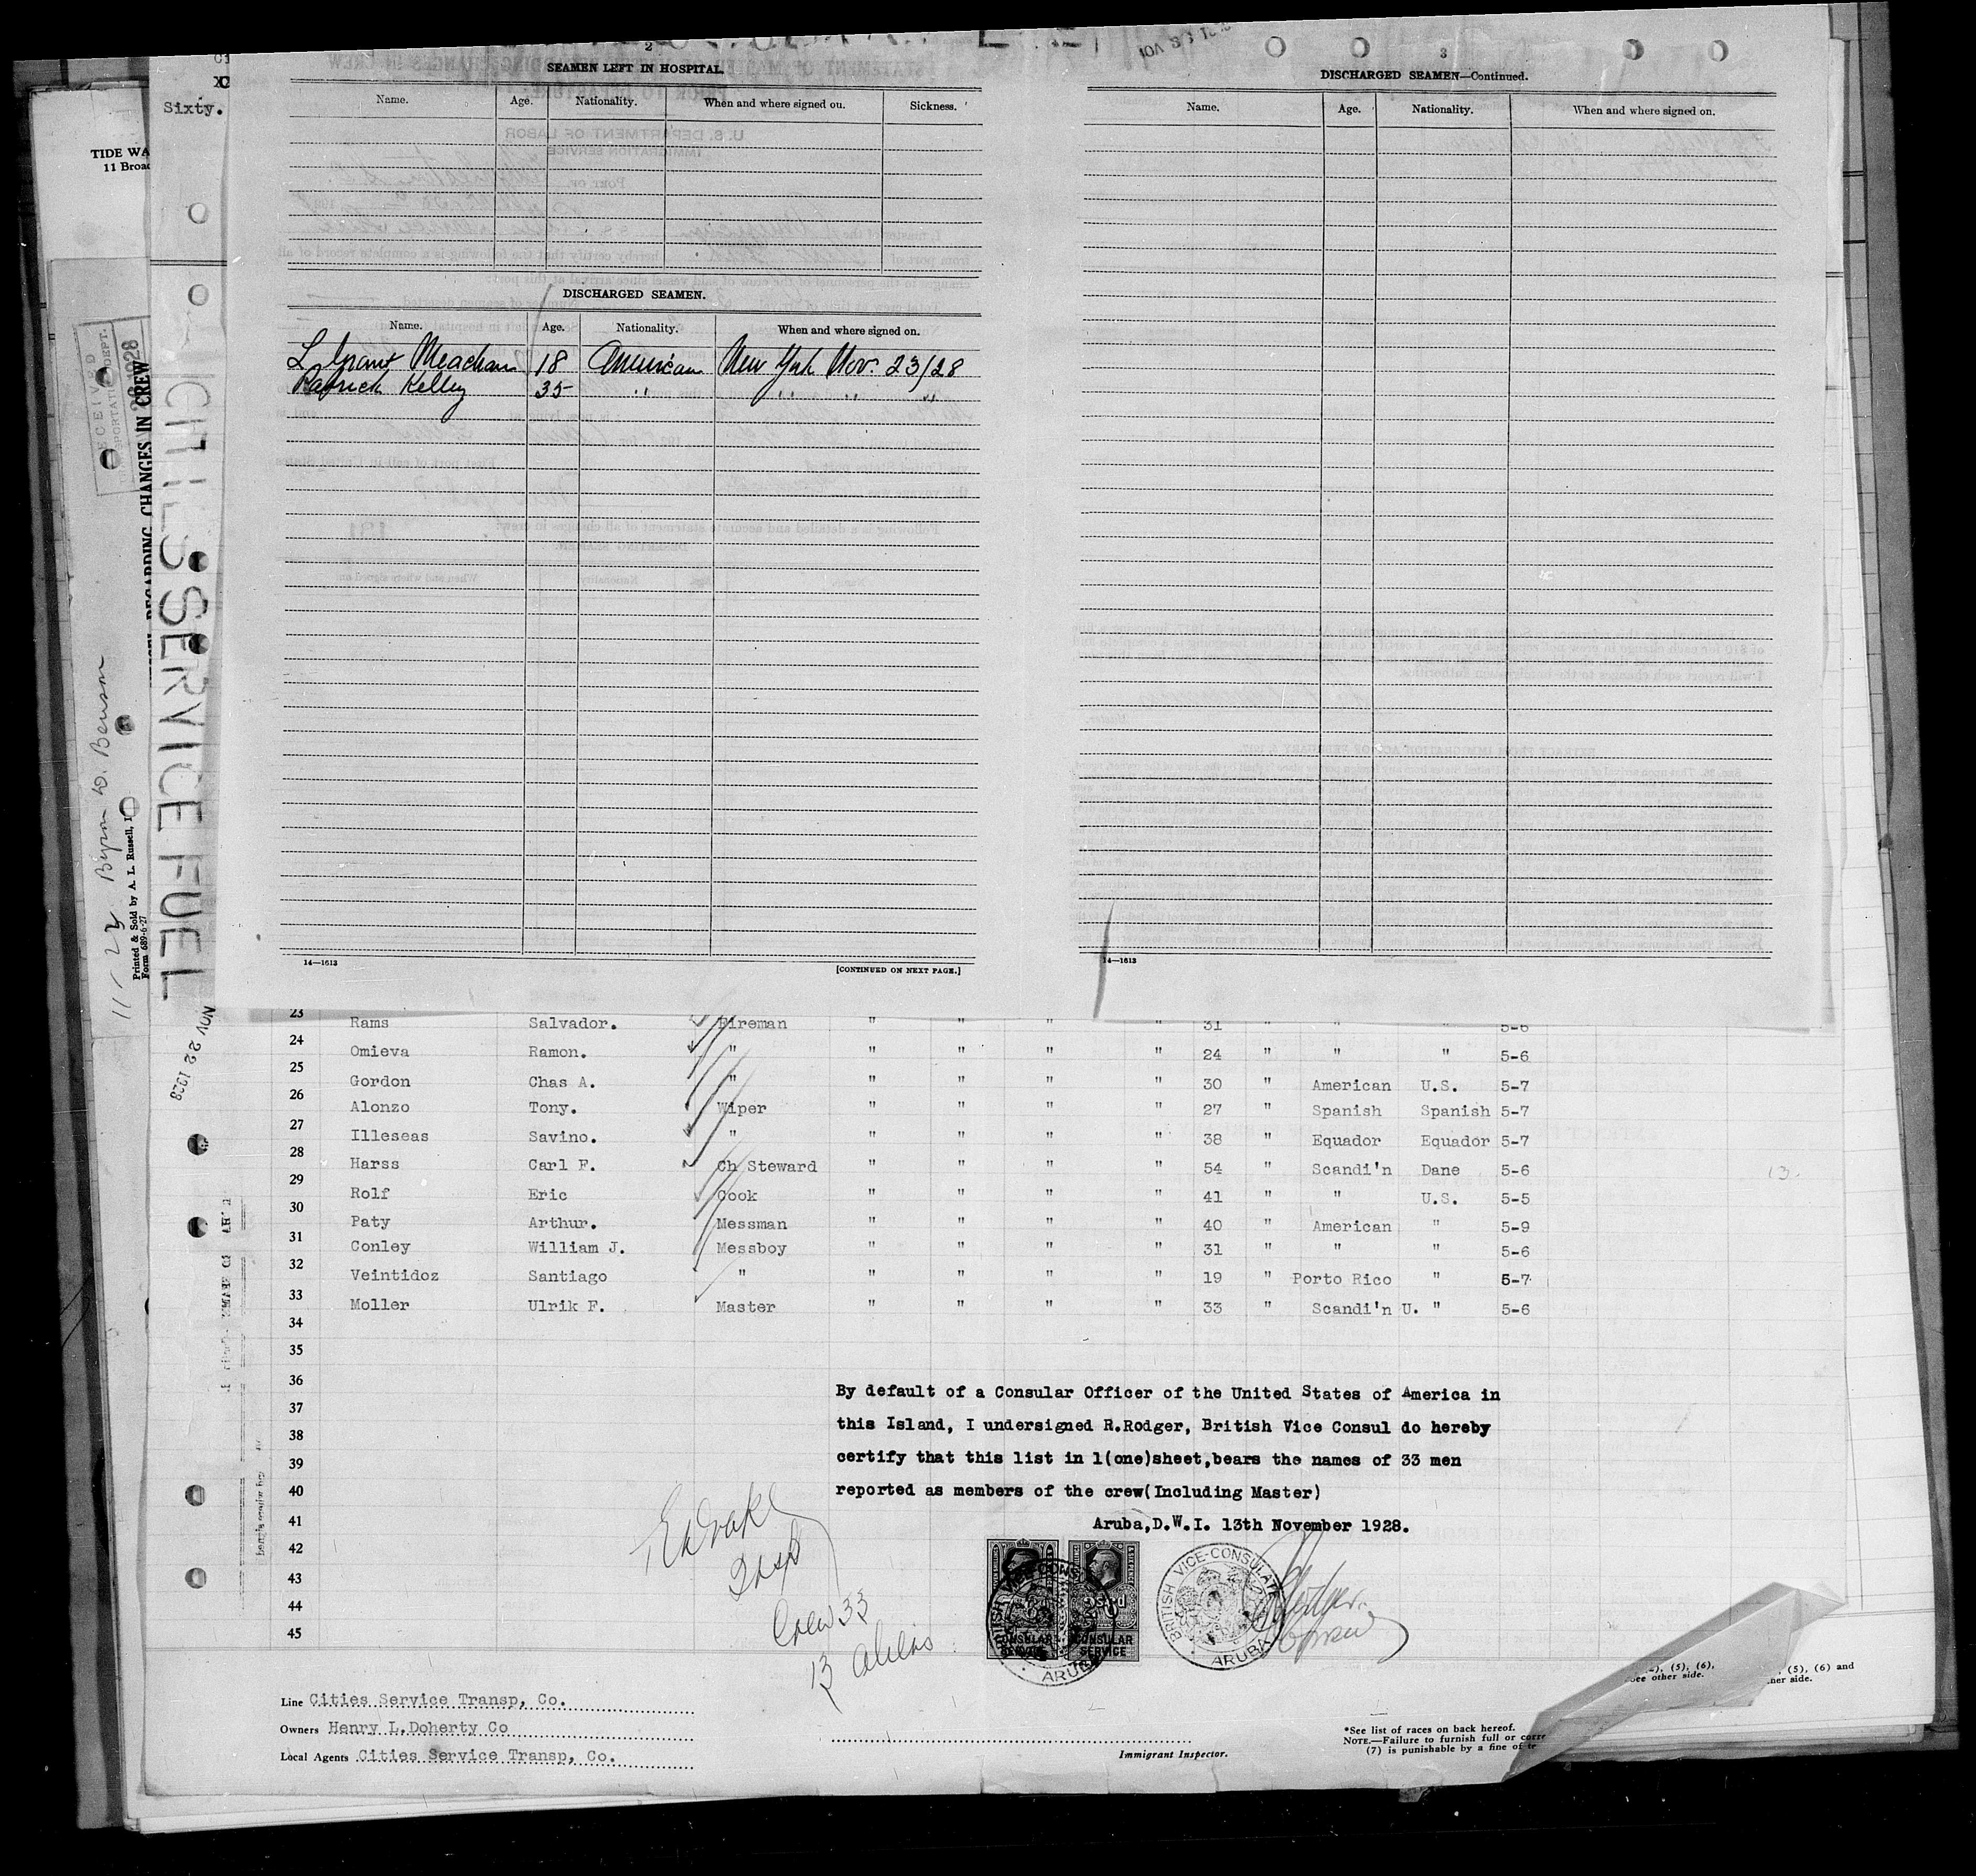 Sixty.
TIDE WA
11 Broad
2
SEAMEN LEFT IN HOSPITAL.
Name. Age. Nationality. When and where signed on. Sickness.
DISCHARGED SEAMEN.
Name. Age. Nationality. When and where signed on.
L Grant Meacham 18 American New York Nov. 23/28
Patrick Kelley 35 " " " "
14—1613
[CONTINUED ON NEXT PAGE.]
3
DISCHARGED SEAMEN—Continued.
Name. Age. Nationality. When and where signed on.
14—1613
RECEIVED
REGARDING CHANGES IN CREW
CITIES SERVICE FUEL
NOV 22 1928
11-22 Byron D. Benson
Printed & Sold by A. L. Russell, I
Form 689-6-27
23 Rams Salvador. Fireman " " " " 31 " " " 5-6
24 Omieva Ramon. " " " " " 24 " " " 5-6
25 Gordon Chas A. " " " " " 30 " American U.S. 5-7
26 Alonzo Tony. Wiper " " " " 27 " Spanish Spanish 5-7
27 Illeseas Savino. " " " " " 38 " Equador Equador 5-7
28 Harss Carl F. Ch Steward " " " " 54 " Scandi'n Dane 5-6
29 Rolf Eric Cook " " " " 41 " " U.S. 5-5
30 Paty Arthur. Messman " " " " 40 " American " 5-9
31 Conley William J. Messboy " " " " 31 " " " 5-6
32 Veintidoz Santiago " " " " " 19 " Porto Rico " 5-7
33 Moller Ulrik F. Master " " " " 33 " Scandi'n U. " 5-6
34
35
36
37
38
39
40
41
42
43
44
45
By default of a Consular Officer of the United States of America in
this Island, I undersigned R.Rodger, British Vice Consul do hereby
certify that this list in 1(one)sheet,bears the names of 33 men
reported as members of the crew(Including Master)
Aruba,D.W.I. 13th November 1928.
Insp
Crew 33
13 aliens
CONSULAR SERVICE
CONSULAR SERVICE
ARUBA
BRITISH VICE-CONSULATE
ARUBA
Line Cities Service Transp, Co.
Owners Henry L.Doherty Co
Local Agents Cities Service Transp, Co.
Immigrant Inspector.
*See list of races on back hereof.
NOTE.—Failure to furnish full or corre
(7) is punishable by a fine of te
(5), (6),
see other side.
(5), (6) and
her side.